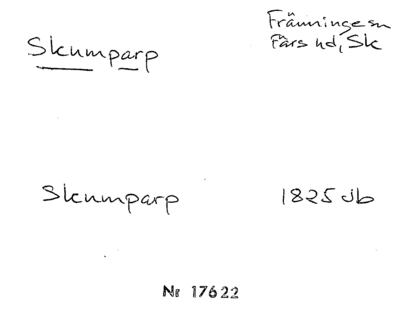 Skumparp
Fränninge sn
Färs hd, Sk
Skumparp
1825 Jb
Nr 17622